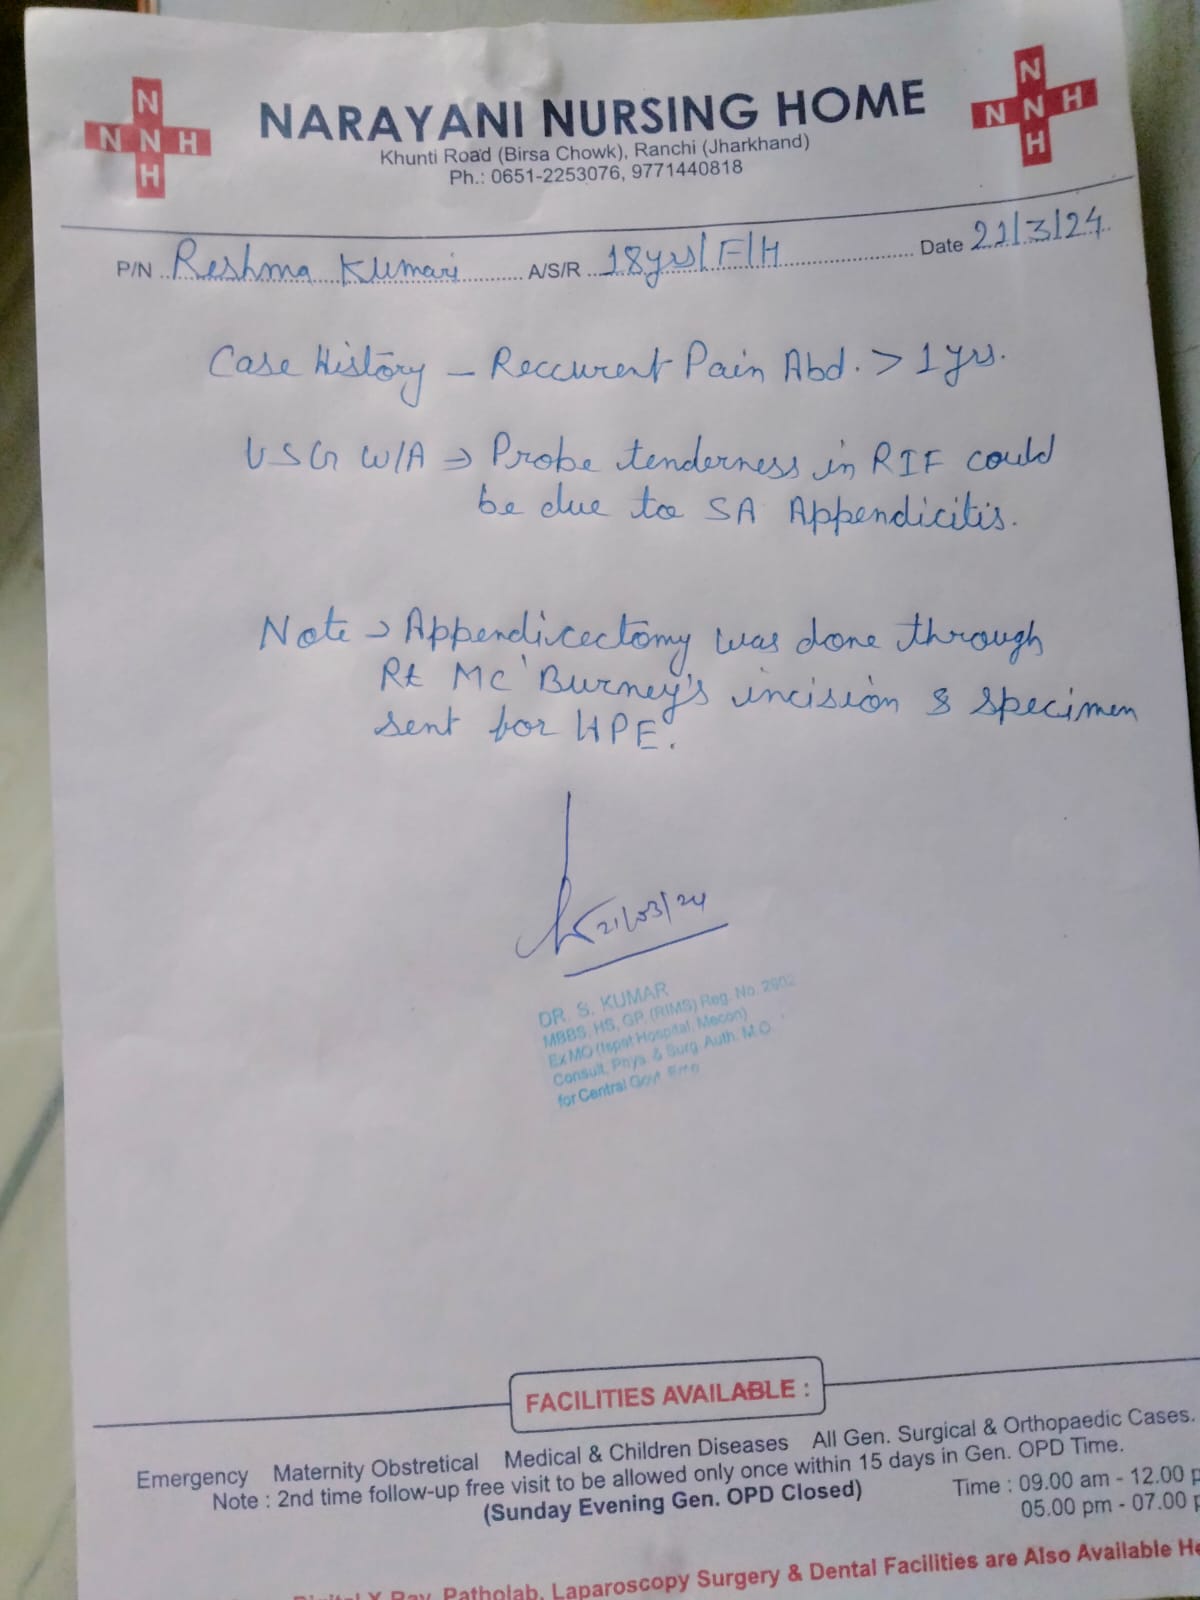 N
N N H
H
N
N N H
H
NARAYANI NURSING HOME
Khunti Road (Birsa Chowk), Ranchi (Jharkhand)
Ph.: 0651-2253076, 9771440818
P/N Reshma Kumari A/S/R 18yrs/F/H Date 21/3/24
Case History – Reccurent Pain Abd. > 1 yrs.
USG W/A ⇒ Probe tenderness in RIF could
be due to SA Appendicitis.
Note → Appendicectomy was done through
Rt Mc'Burney's incision & specimen
sent for HPE.
21/03/24
DR. S. KUMAR
MBBS, HS, GP, (RIMS) Reg. No. 2902
Ex MO (Ispat Hospital, Mecon)
Consult. Phys. & Surg. Auth. M.O.
for Central Govt
FACILITIES AVAILABLE :
Emergency Maternity Obstretical Medical & Children Diseases All Gen. Surgical & Orthopaedic Cases.
Note : 2nd time follow-up free visit to be allowed only once within 15 days in Gen. OPD Time.
(Sunday Evening Gen. OPD Closed) Time : 09.00 am - 12.00 p
05.00 pm - 07.00 p
X Ray, Patholab, Laparoscopy Surgery & Dental Facilities are Also Available He